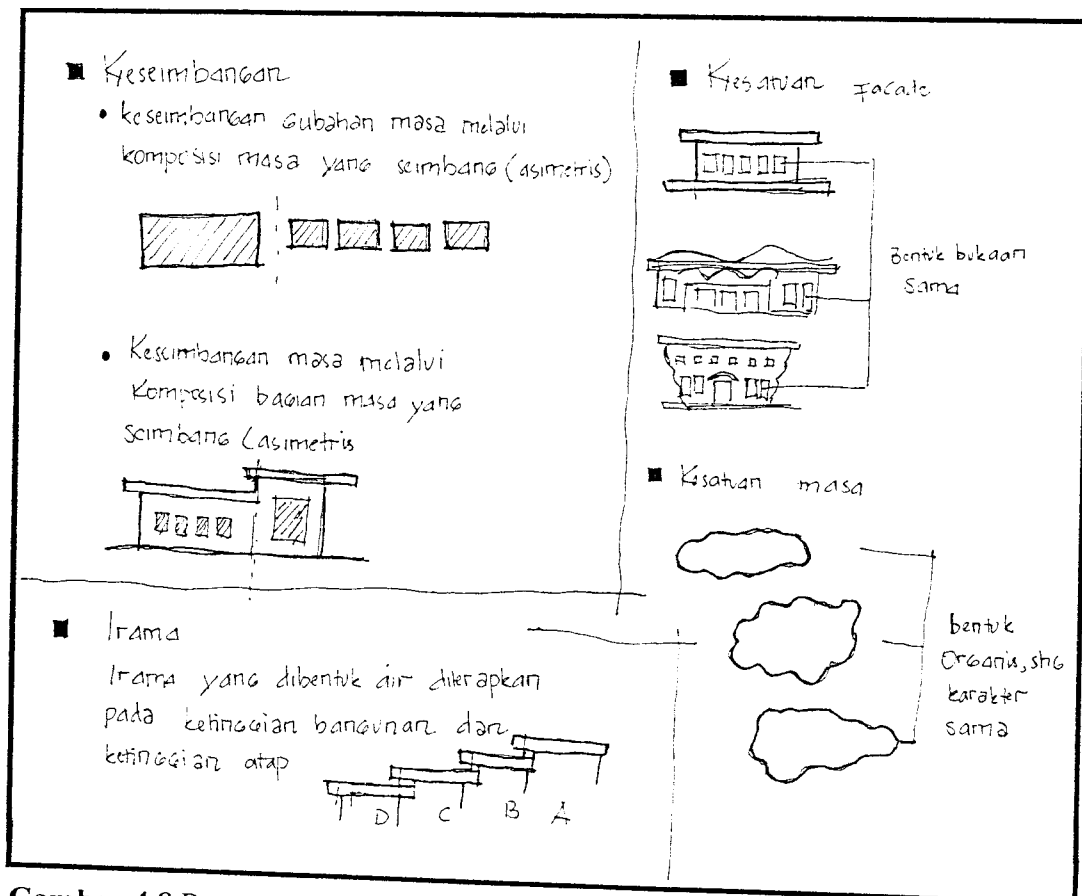 Keseimbangan
• keseimbangan gubahan masa melalui
komposisi masa yang seimbang (asimetris)
• Keseimbangan masa melalui
Komposisi bagian masa yang
seimbang (asimetris
Irama
Irama yang dibentuk air diterapkan
pada ketinggian bangunan dan
ketinggian atap
D C B A
Kesatuan Facade
Bentuk bukaan
sama
Kesatuan masa
bentuk
Organis, shg
karakter
sama
Gambar 4.8